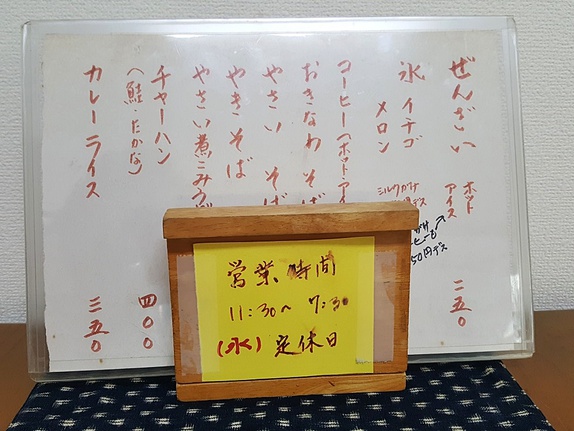 ぜんざい ホット 二五〇
アイス
氷 イチゴ
メロン
ミルクかみ
50円デス
コーヒー(ホット・アイ
おきなわそば
やさいそば
やきそば
やさい煮こみうど
チャーハン 四〇〇
(鮭・たかな)
カレーライス 三五〇
営業時間
11:30~ 7:30
(水) 定休日